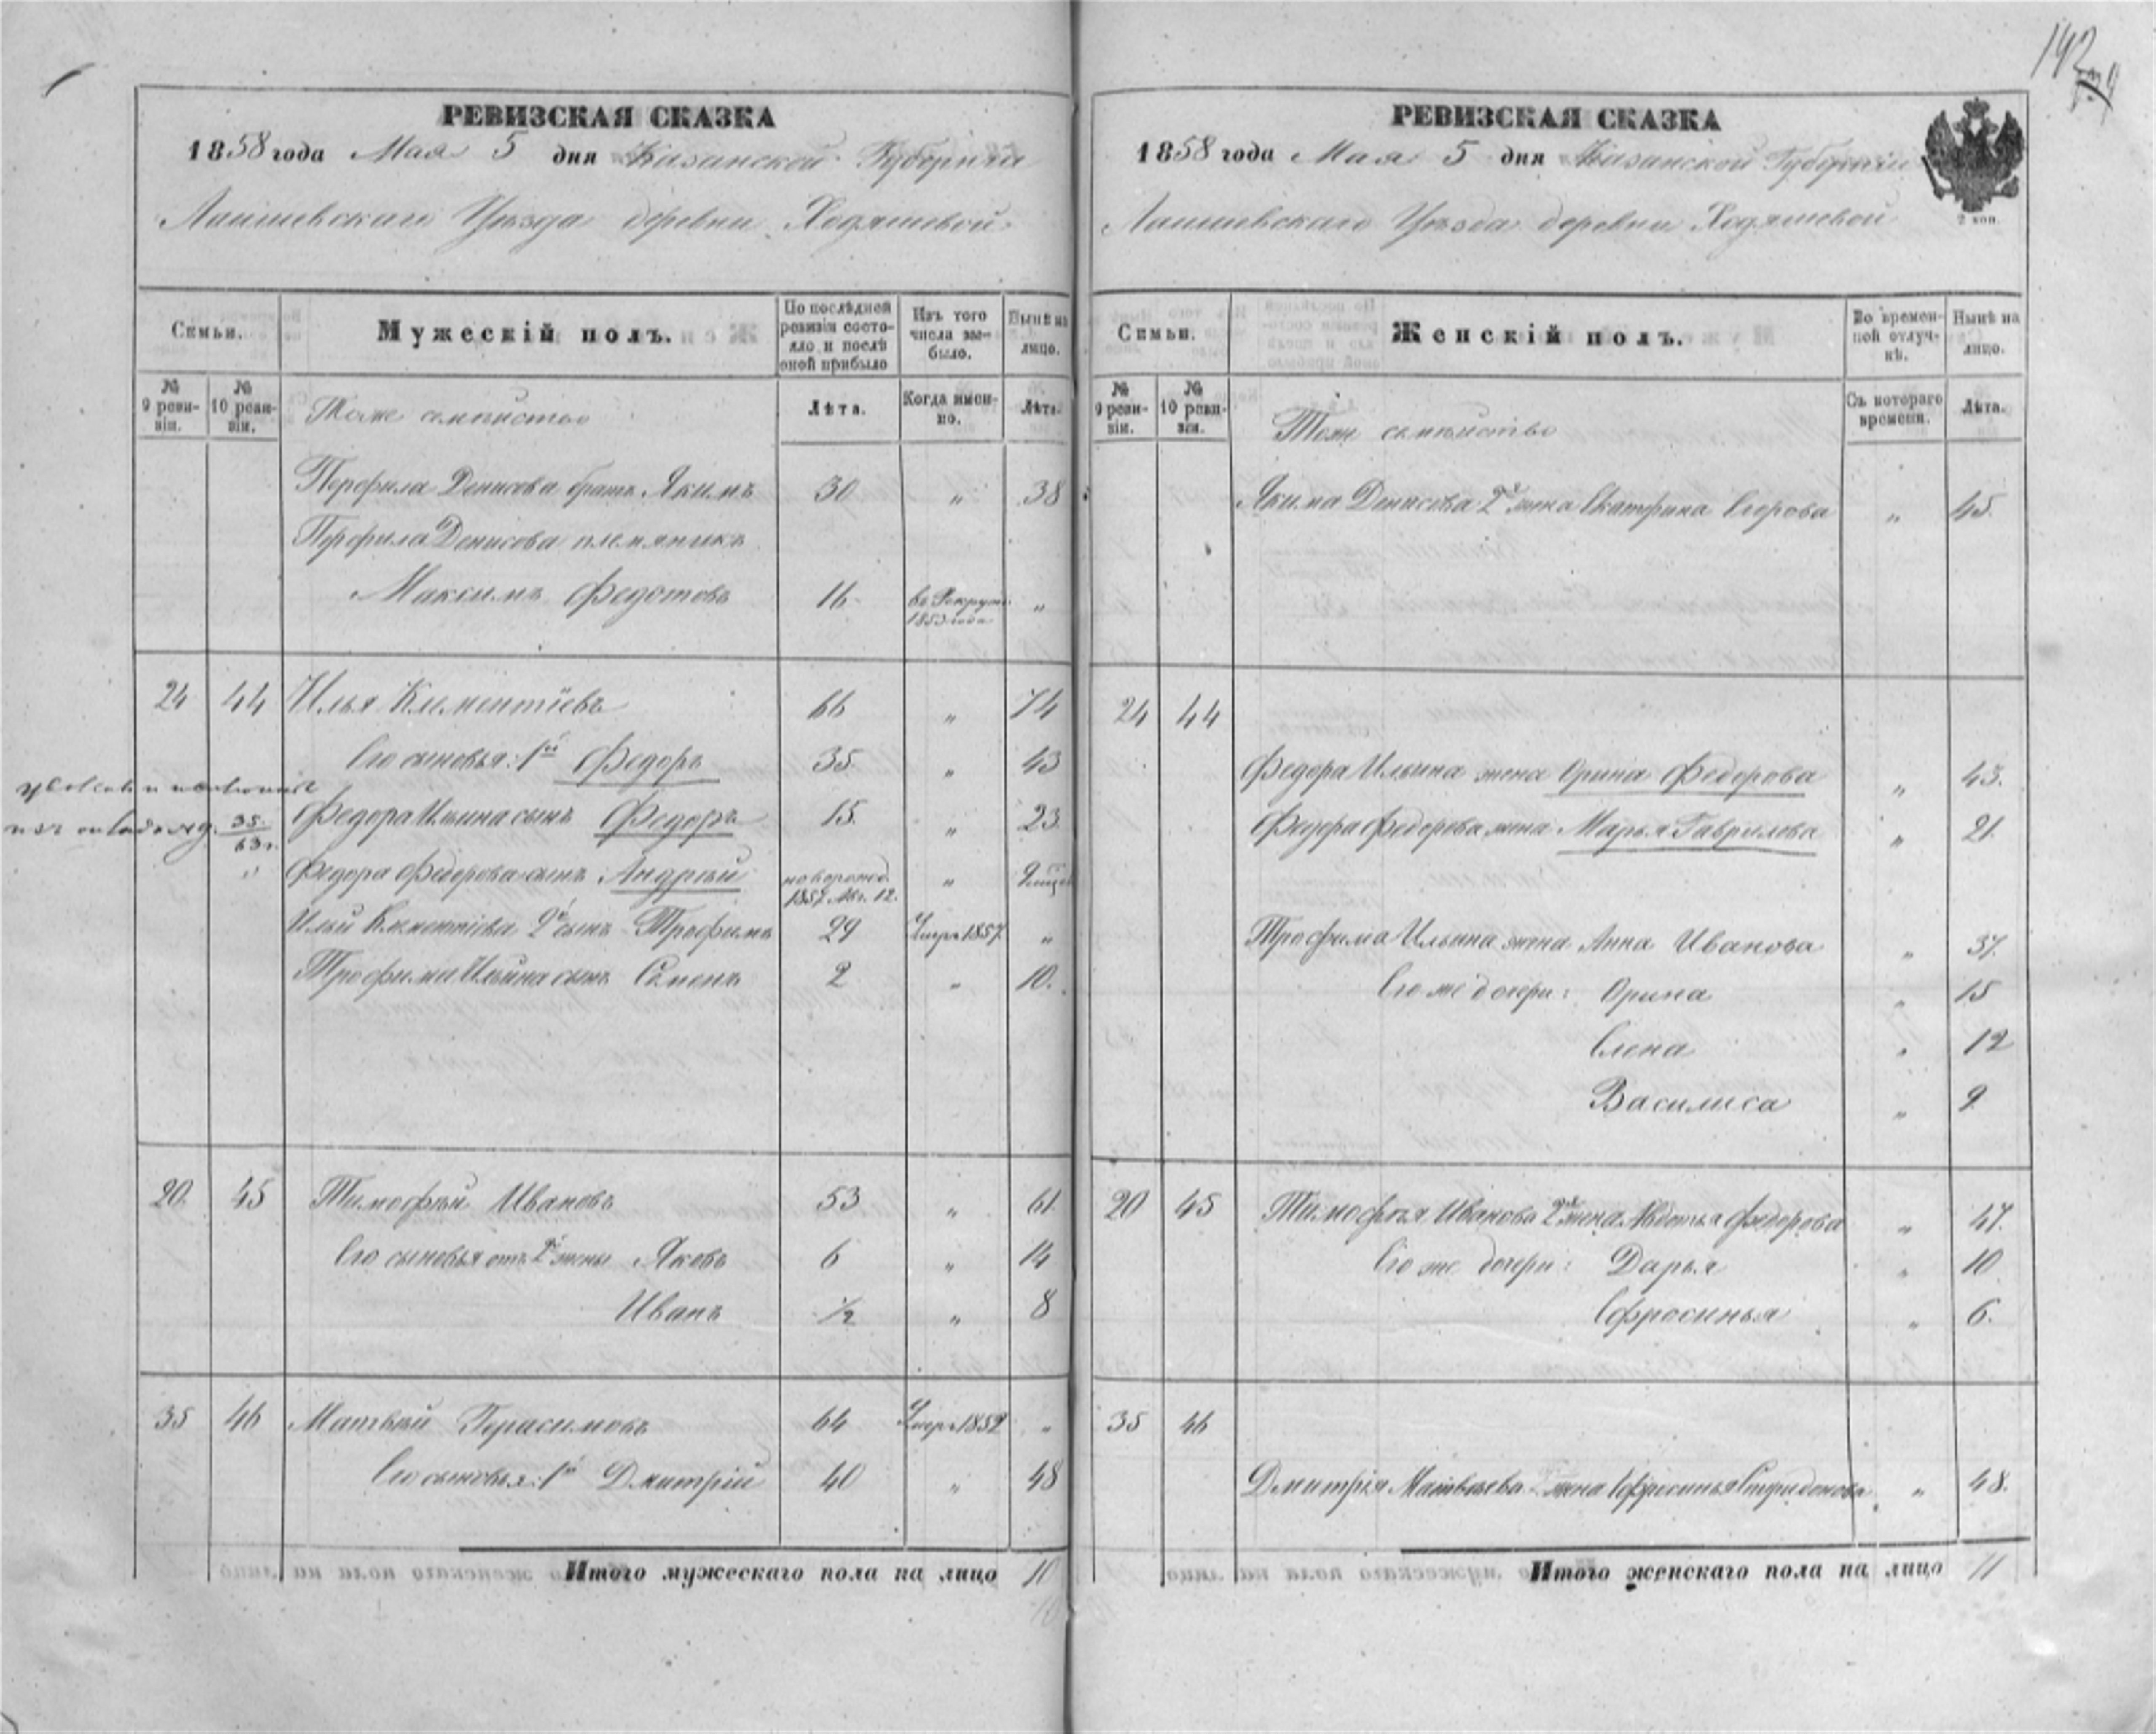 192
РЕВИЗСКАЯ СКАЗКА
1858 года Мая 5 дня Казанской Губернiи
Лаишевскаго Уѣзда деревни Ходяшевой
Семьи. Мужескiй полъ. По послѣдней ревизiи состояло и послѣ оной прибыло Изъ того числа выбыло. Нынѣ на лицо.
№ 9 ревизiи. № 10 ревизiи. Тоже семѣйство Лѣта. Когда именно. Лѣта.
Перфила Денисова братъ Якимъ 30 " 38
Перфила Денисова племяникъ
Максимъ Федотовъ 16 въ Рекруты 1853 года "
24 44 Илья Климентiевъ 66 " 74
Его сыновья: 1й Федоръ 35 " 43
Федора Ильина сынъ Федоръ 15 " 23
35/63 г.
Федора Федорова сынъ Андрей новорожд. 1857 Авг. 12. " 9 мѣся
Ильи Климентiева 2й сынъ Трофимъ 29 Умеръ 1857 "
Трофима Ильина сынъ Семенъ 2 " 10.
20 45 Тимофѣй Ивановъ 53 " 61
Его сыновья отъ 2й жены Яковъ 6 " 14
Иванъ ½ " 8
35 46 Матвѣй Герасимовъ 64 Умеръ 1852 "
Его сыновья: 1й Дмитрiй 40 " 48
Итого мужескаго пола на лицо 10
РЕВИЗСКАЯ СКАЗКА
1858 года Мая 5 дня Казанской Губернiи
Лаишевскаго Уѣзда деревни Ходяшевой
2 коп.
Семьи. Женскiй полъ. Во временной отлучкѣ. Нынѣ на лицо.
№ 9 ревизiи. № 10 ревизiи. Тоже семѣйство Съ котораго времени. Лѣта.
Якима Денисова 2я жена Екатерина Егорова " 45.
24 44
Федора Ильина жена Орина Федорова " 43.
Федора Федорова жена Марья Гаврилова " 21.
Трофима Ильина жена Анна Иванова " 37.
Его же дочери: Орина " 15
Елена " 12
Василиса " 9
20 45 Тимофѣя Иванова 2я жена Авдотья Федорова " 47.
Его же дочери: Дарья " 10
Ефросинья " 6.
35 46
Дмитрiя Матвѣева жена Ефросинья Спиридонова " 48.
Итого женскаго пола на лицо 11